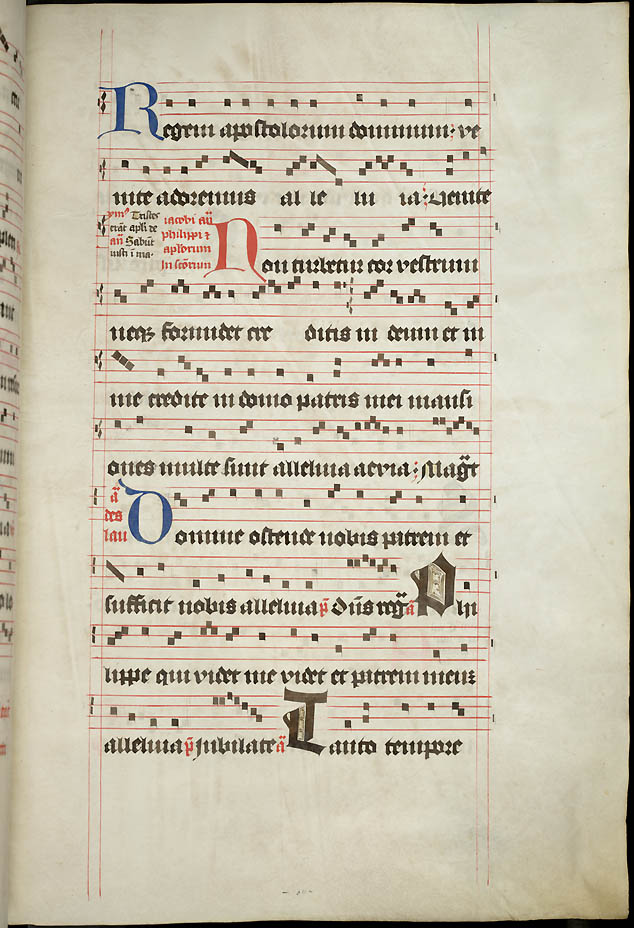 Regem apostolorum dominum: ve
nite adoremus al le lu ia: Venite
ymꝰ Tristes
erāt apl̄i de
añ Sabūt
iusti i ma.
iacobi añ
philippi ⁊
aplorum
In sc̄orum
Non turbetur cor vestrum
neqꝫ formidet cre ditis in deum et in
me credite in domo patris mei mansi
ones multe sunt alleluia aevia: Mag̃t
a
des
lau
Domine ostende nobis patrem et
sufficit nobis alleluia p̄ dūs reg̃ a Phi
lippe qui videt me videt et patrem meuꝫ
alleluia p̄ iubilate a Tanto tempore